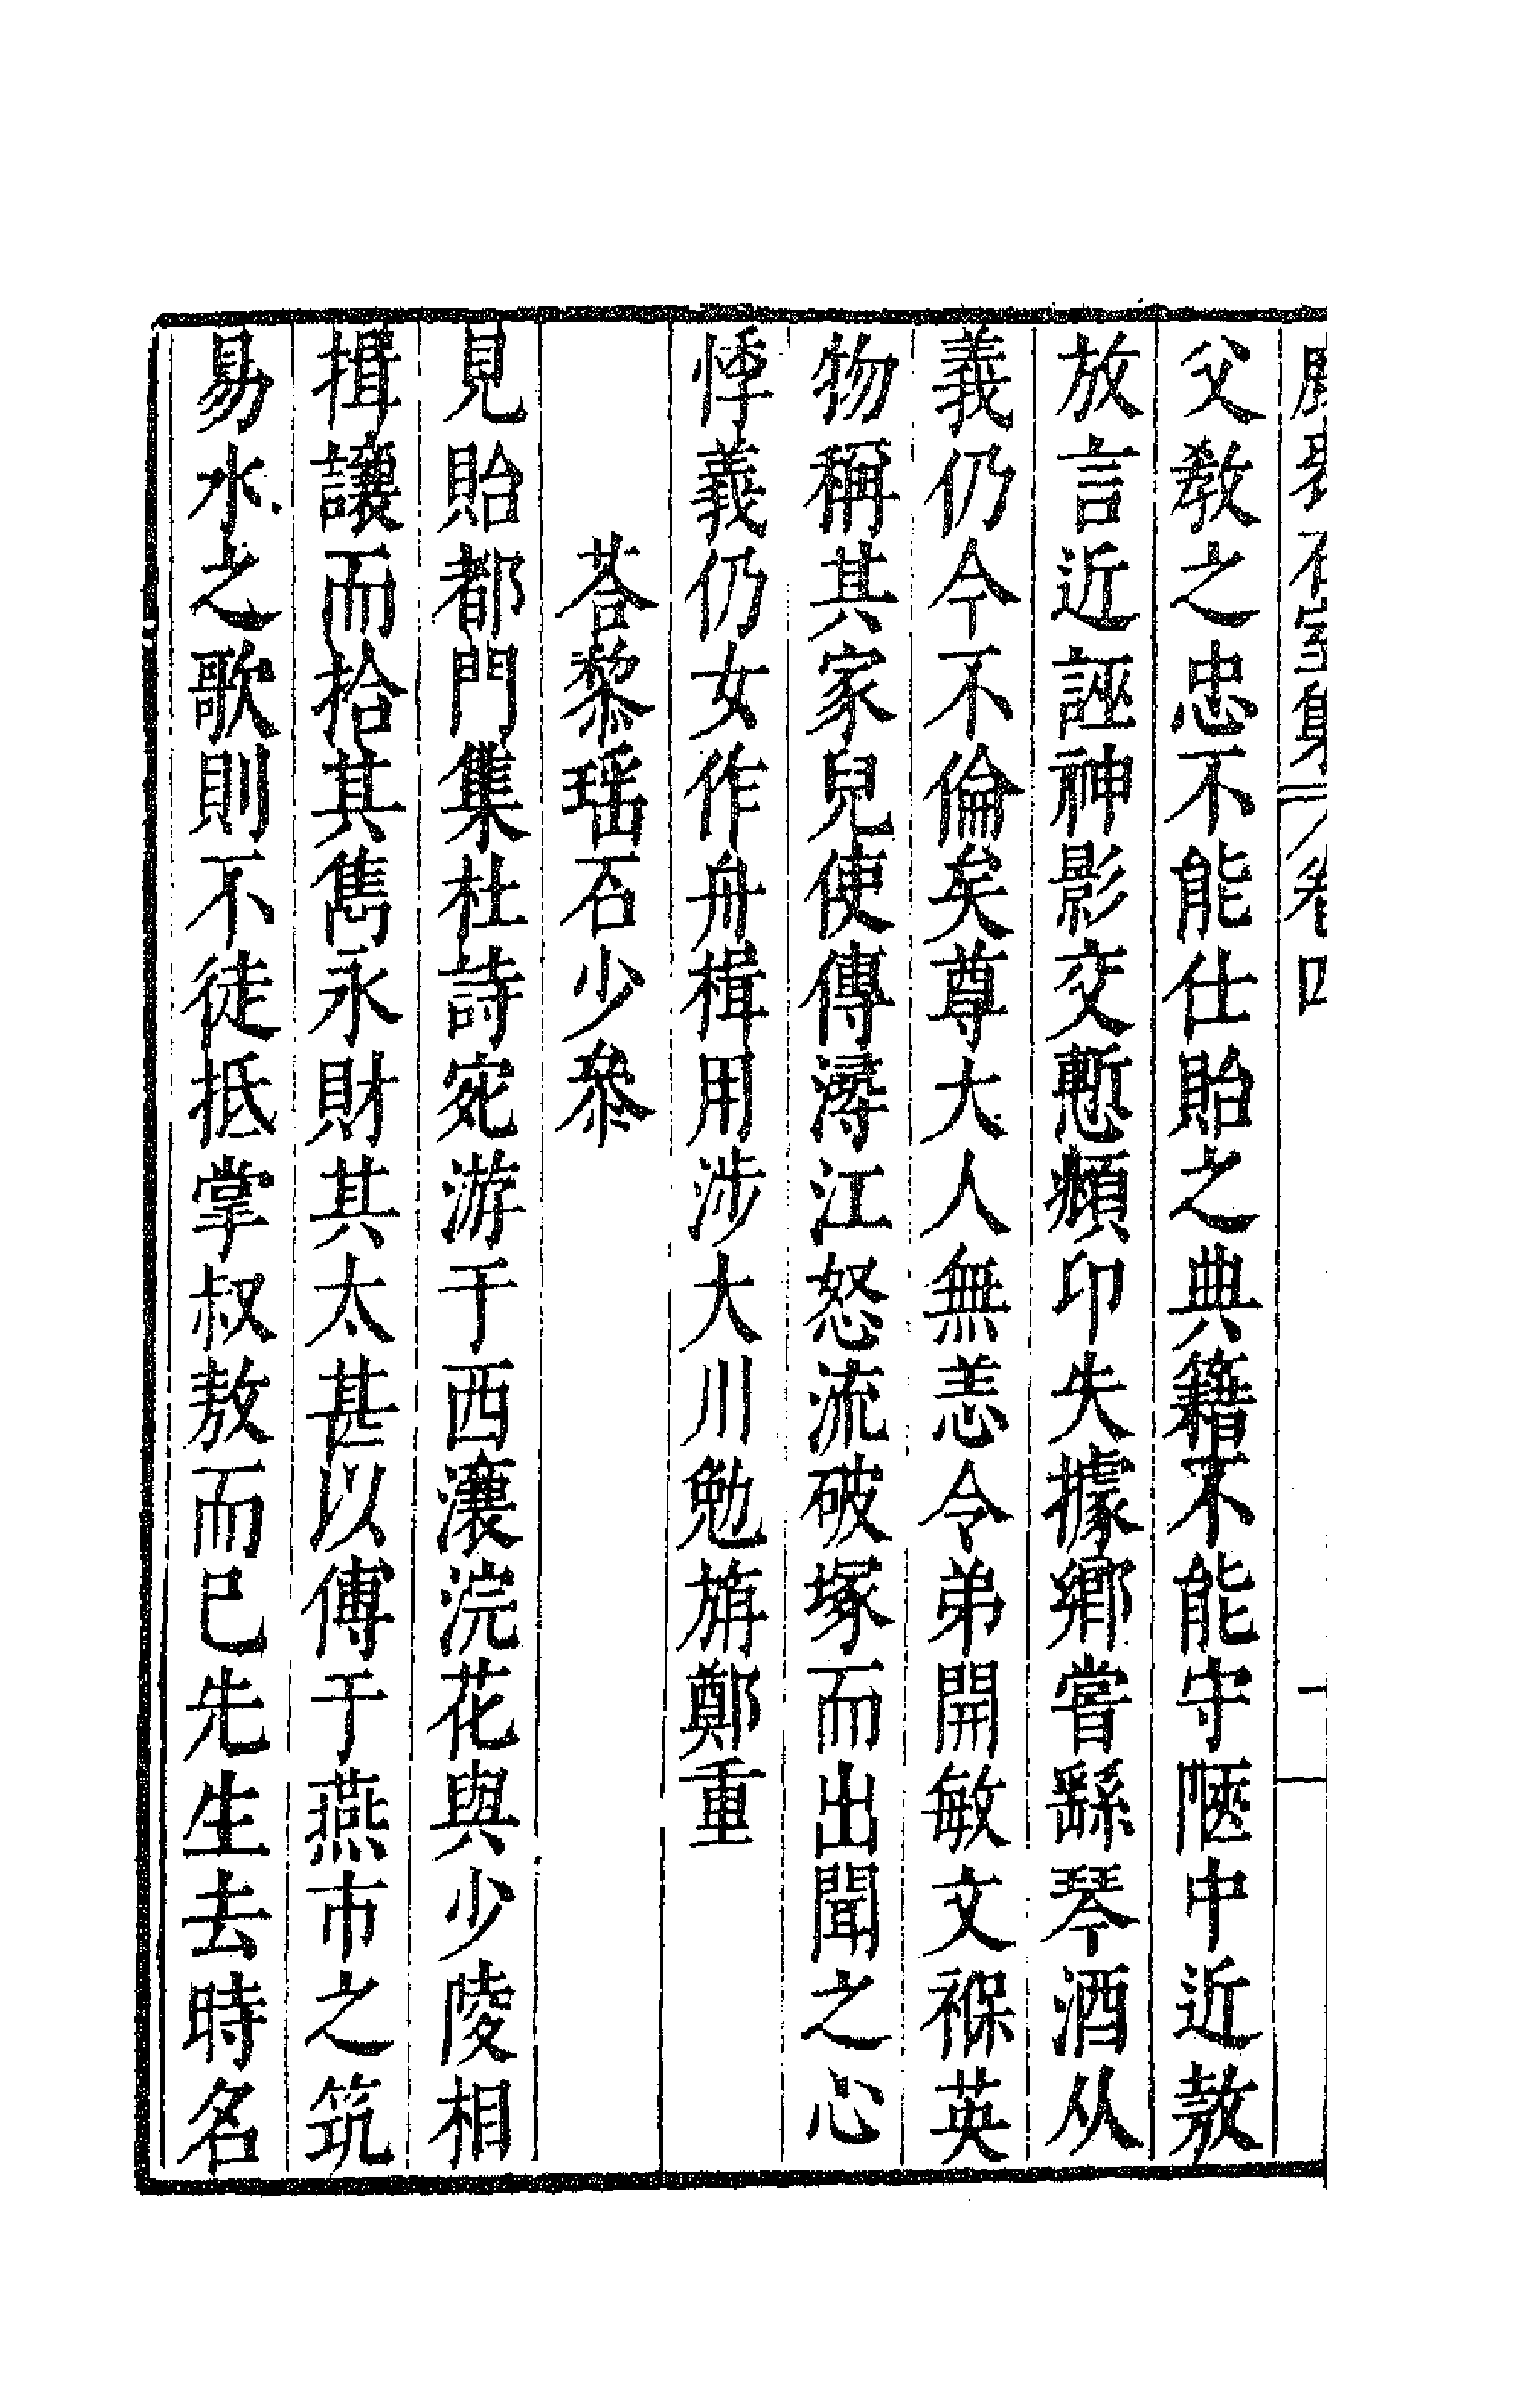 卷四
父教之忠不能仕貽之典籍不能守陋中近敖
放言近誣神影交慙頫印失據鄉嘗繇琴酒从
義仍今不倫矣尊大人無恙令弟開敏文褓英
物稱其家兒使傳潯江怒流破塚而出聞之心
悸義仍女作舟楫用涉大川勉旃鄭重
荅黎瑶石少叅
見貽都門集杜詩宛游于西瀼浣花與少陵相
揖讓而拾其雋永財其太甚以傅于燕市之筑
易水之歌則不徒抵掌叔敖而已先生去時名